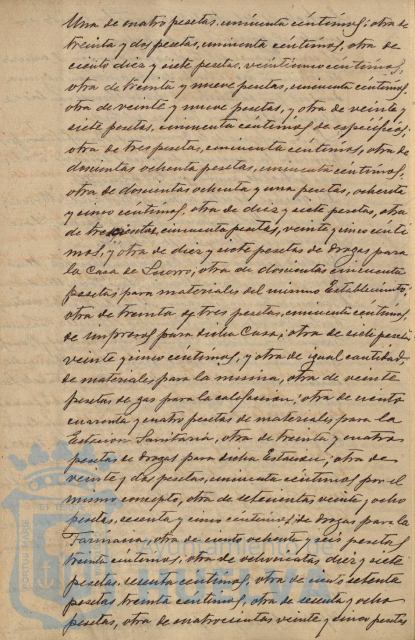 Una de cuatro pesetas, cincuenta céntimos; otra de
treinta y dos pesetas, cincuenta céntimos, otra de
ciento diez y siete pesetas, veinticinco céntimos,
otra de treinta y nueve pesetas, cincuenta céntimos,
otra de veinte y nueve pesetas, y otra de veinte y
siete pesetas, cincuenta céntimos de específicos,
otra de tres pesetas, cincuenta céntimos, otra de
doscientas ochenta pesetas, cincuenta céntimos,
otra de doscientas ochenta y una pesetas, ochenta
y cinco céntimos, otra de diez y siete pesetas, otra
de trescientas, cincuenta pesetas, veinte y cinco cénti
mos, y otra de diez y siete pesetas de drogas para
la Casa de Socorro; otra de doscientas cincuenta
pesetas para materiales del mismo Establecimiento;
otra de treinta y tres pesetas, cincuenta céntimos
de impresos para dicha Casa; otra de siete pesetas
veinte y cinco céntimos, y otra de igual cantidad
de materiales para la misma, otra de veinte
pesetas de gas para la calefacción; otra de ciento
cuarenta y cuatro pesetas de materiales para la
Estación Sanitaria, otra de treinta y cuatro
pesetas de drogas para dicha Estación; otra de
veinte y dos pesetas, cincuenta céntimos por el
mismo concepto, otra de setecientas veinte y ocho
pesetas, sesenta y cinco céntimos, de drogas para la
Farmacia, otra de ciento ochenta y seis pesetas
treinta céntimos, otra de ochocientas diez y siete
pesetas, sesenta céntimos, otra de ciento setenta
pesetas treinta céntimos, otra de sesenta y ocho
pesetas, otra de cuatrocientas veinte y cinco pesetas